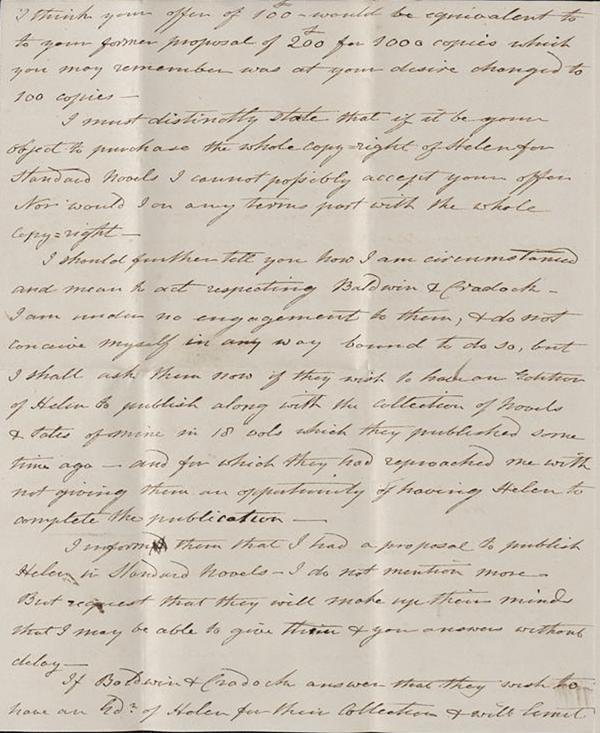 I think your offer of 100£ - would be equivalent to
to your former proposal of 200£ for 1000 copies which
you may remember was at your desire changed to
100 copies —
I must distinctly state that if it be your
object to purchase the whole copy=right of Helen for
Standard Novels I cannot possibly accept your offer
Nor would I on any terms part with the whole
copy=right —
I should further tell you how I am circumstanced
and mean to act respecting Baldwin & Cradock —
I am under no engagement to them, & do not
conceive myself in any way bound to do so, but
I shall ask them now if they wish to have an Edition
of Helen to publish along with the collection of Novels
& tales of mine in 18 vols which they published some
time ago — and for which they had reproached me with
not giving them an opportunity of having Helen to
complete the publication —
I inform them that I had a proposal to publish
Helen in Standard Novels — I do not mention more —
But request that they will make up their minds
that I may be able to give them & you answers without
delay —
If Baldwin & Cradock answer that they wish to
have an Edn. of Helen for their Collection & will limit